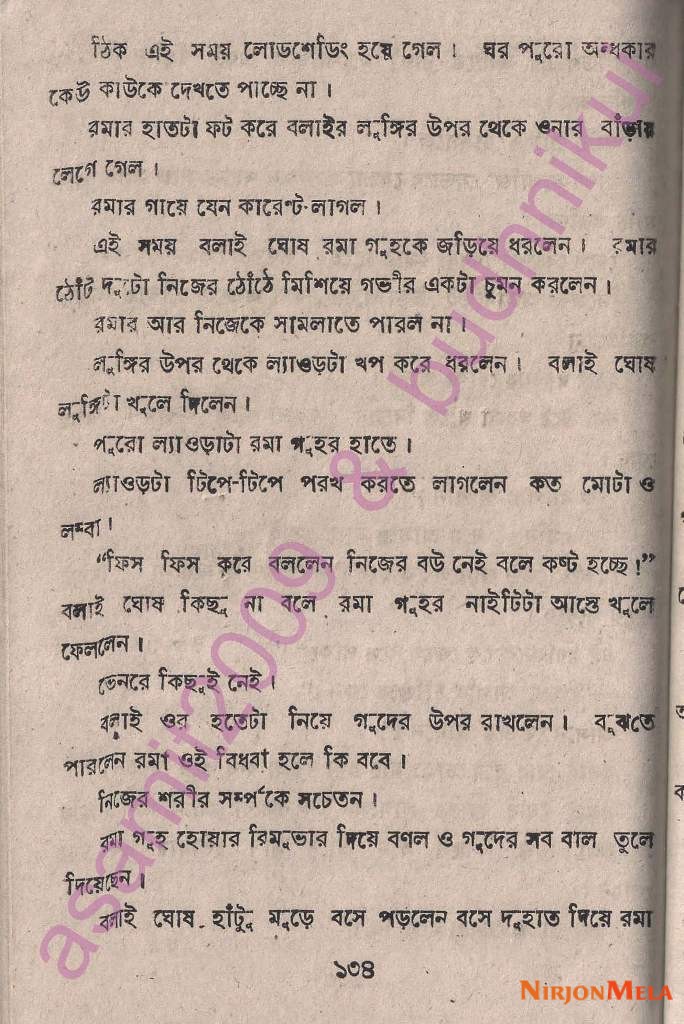 ঠিক এই সময় লোডশেডিং হয়ে গেল। ঘর পুরো অন্ধকার
কেউ কাউকে দেখতে পাচ্ছে না।
রমার হাতটা ফট করে বলাইর লুঙ্গির উপর থেকে ওনার বাঁড়ায়
লেগে গেল।
রমার গায়ে যেন কারেন্ট লাগল।
এই সময় বলাই ঘোষ রমা গুহকে জড়িয়ে ধরলেন। রমার
ঠোঁট দুটো নিজের ঠোঁঠে মিশিয়ে গভীর একটা চুমন করলেন।
রমার আর নিজেকে সামলাতে পারল না।
লুঙ্গির উপর থেকে ল্যাওড়টা খপ করে ধরলেন। বলাই ঘোষ
লুঙ্গিটা খুলে দিলেন।
পুরো ল্যাওড়াটা রমা গুহর হাতে।
ল্যাওড়টা টিপে-টিপে পরখ করতে লাগলেন কত মোটা ও
লম্বা!
“ফিস ফিস করে বললেন নিজের বউ নেই বলে কষ্ট হচ্ছে!”
বলাই ঘোষ কিছু না বলে রমা গুহর নাইটিটা আস্তে খুলে
ফেললেন।
ভেনরে কিছুই নেই।
বলাই ওর হতেটা নিয়ে গুদের উপর রাখলেন। বুঝতে
পারলেন রমা ওই বিধবা হলে কি ববে।
নিজের শরীর সম্পর্কে সচেতন।
রমা গুহ হোয়ার রিমুভার দিয়ে বগল ও গুদের সব বাল তুলে
দিয়েছেন।
বলাই ঘোষ হাঁটু মুড়ে বসে পড়লেন বসে দুহাত দিয়ে রমা
১৩৪
asamit2009 & budhnikul
NIRJONMELA